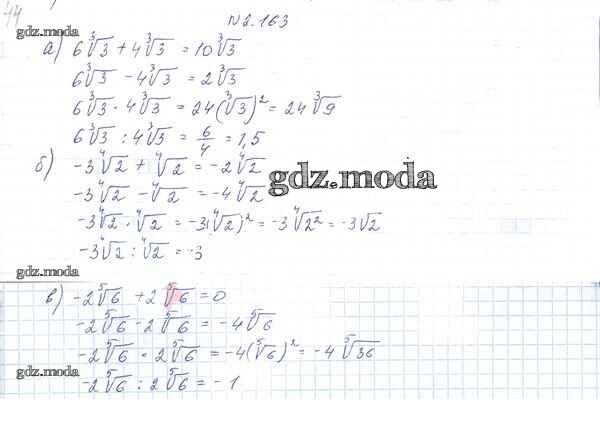 44
N2.163
gdz.moda
а) 6∛3 + 4∛3 = 10∛3
6∛3 - 4∛3 = 2∛3
6∛3 · 4∛3 = 24(∛3)² = 24∛9
6∛3 : 4∛3 = 6/4 = 1,5
б) -3∜2 + ∜2 = -2∜2
gdz.moda
-3∜2 - ∜2 = -4∜2
-3∜2 · ∜2 = -3(∜2)² = -3∜2² = -3√2
-3∜2 : ∜2 = -3
gdz.moda
в) -2⁵√6 + 2⁵√6 = 0
-2⁵√6 - 2⁵√6 = -4⁵√6
-2⁵√6 · 2⁵√6 = -4(⁵√6)² = -4⁵√36
gdz.moda
-2⁵√6 : 2⁵√6 = -1